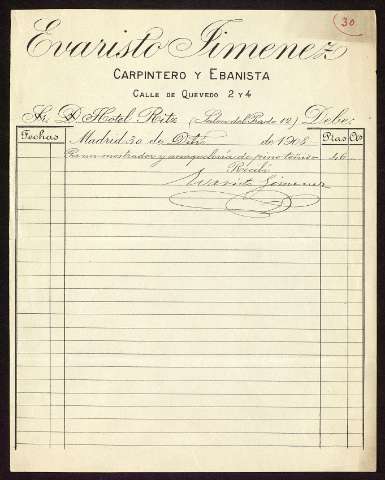 30
Evaristo Jimenez
CARPINTERO Y EBANISTA
CALLE DE QUEVEDO 2 Y 4
Sr. D. Hotel Ritz (Salon del Prado 12) Debe:
Fechas Ptas Cts
Madrid 30 de Dbre de 1908
Por un mostrador y anaquelería de pino teñido 46
Recibí
Evaristo Jimenez